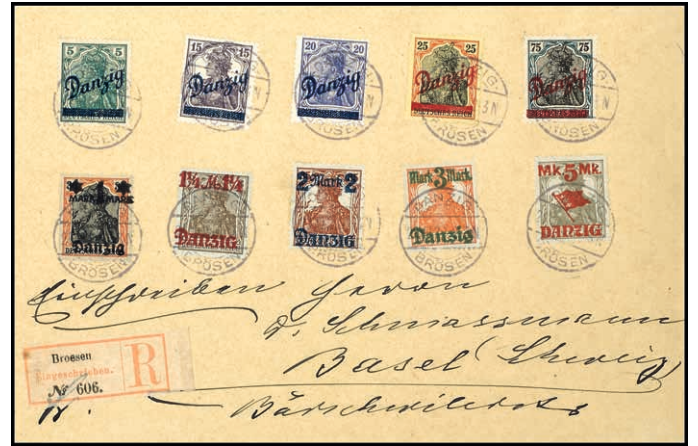 5 5
Danzig
15 15
Danzig
20 20
Danzig
25 25
Danzig
75 75
Danzig
1
MARK MARK
Danzig
1¼ M. 1¼
DANZIG
2 Mark 2
DANZIG
Mark 3 Mark
Danzig
Mk 5 Mk.
DANZIG
DANZIG
BRÖSEN
Einschreiben Herrn
Dr. Schmassmann
Basel (Schweiz)
Bärschwilerstr
Broesen
Eingeschrieben.
R
№ 606.